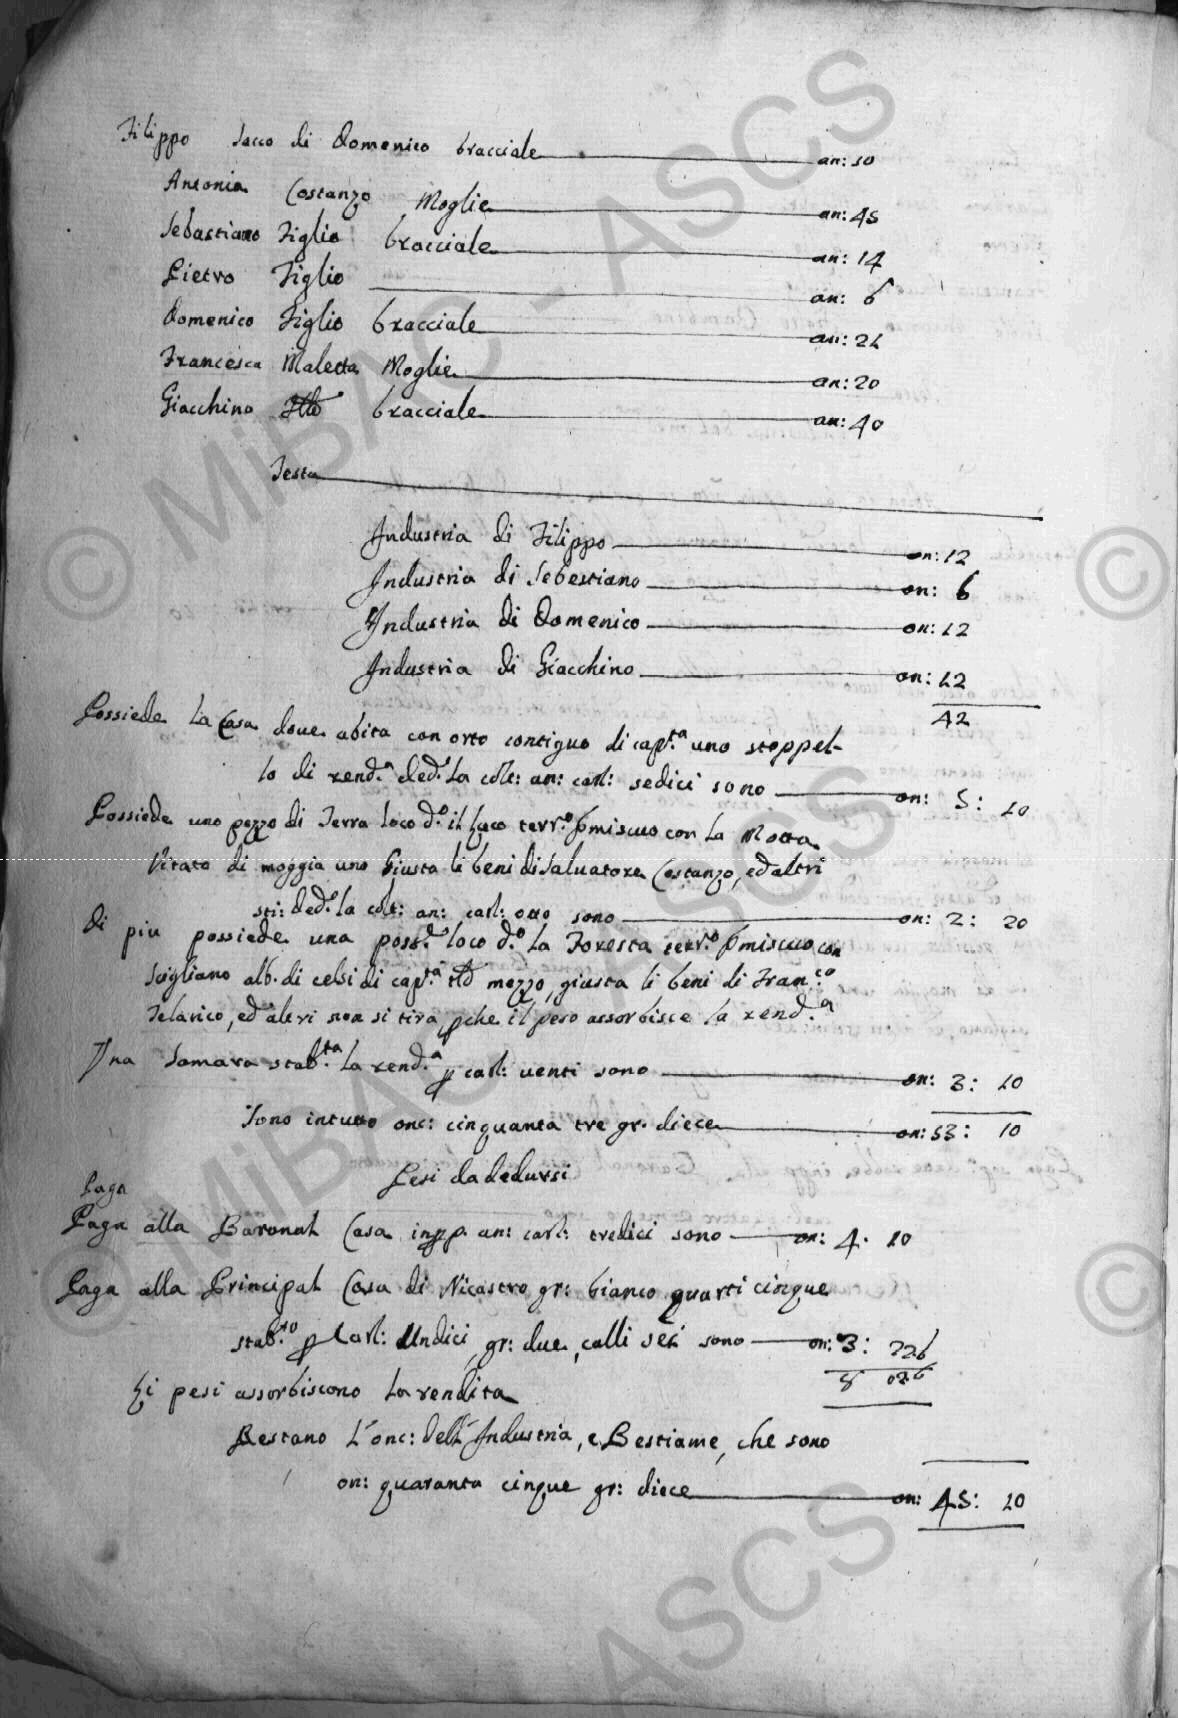 Filippo Sacco di Domenico bracciale an: 50
Antonia Costanzo Moglie an: 45
Sebastiano Figlio bracciale an: 14
Pietro Figlio an: 6
Domenico Figlio bracciale an: 24
Francesca Maletta Moglie an: 20
Giacchino bracciale an: 40
Testa
Industria di Filippo on: 12
Industria di Sebestiano on: 6
Industria di Domenico on: 12
Industria di Giacchino on: 12
42
Possiede la Casa doue abita con orto contiguo di cap.ta uno stoppel-
lo di rend.a ded.e la colt: an: carl: sedici sono on: 5: 10
Possiede uno pezzo di Terra loco d.o il luco terr.o pmiscuo con la Motta
Vitato di moggia uno Giusta li beni di Saluatore Costanzo, ed altri
sti: ded.e la colt: an: carl: otto sono on: 2: 20
di piu possiede una poss.e loco d.o la Foresta terr.o pmiscuo con
Scigliano alb. di celsi di cap.ta mezzo, giusta li beni di Fran.co
Telarico, ed altri non si tira, pche il peso assorbisce la rend.a
Una Somara stab.ta la rend.a p carl: uenti sono on: 3: 10
Sono intutto onc: cinquanta tre gr. diece on: 53: 10
Pesi da dedursi
Paga
Paga alla Baronal Casa an: carl: tredici sono on: 4. 10
Paga alla Principal Casa di Nicastro gr: bianco quarti cinque
stab.to p Carl: Undici, gr: due, calli sei sono on: 3: 226
8 026
Li pesi assorbiscono la rendita
Restano l'onc: dell'Industria, e Bestiame, che sono
on: quaranta cinque gr: diece on: 45: 10
© MiBAC - ASCS
© MiBAC - ASCS
©
©
ASCS